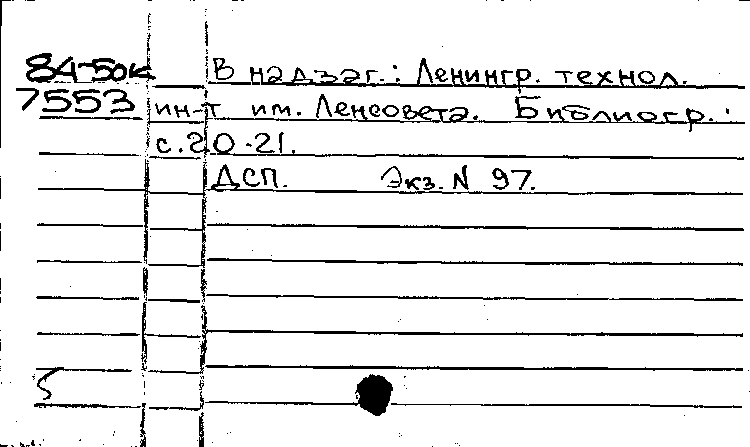 84-50к В надзаг.: Ленингр. технол.
7553 ин-т им. Ленсовета. Библиогр.:
с. 20-21.
ДСП. Экз. N 97.
5